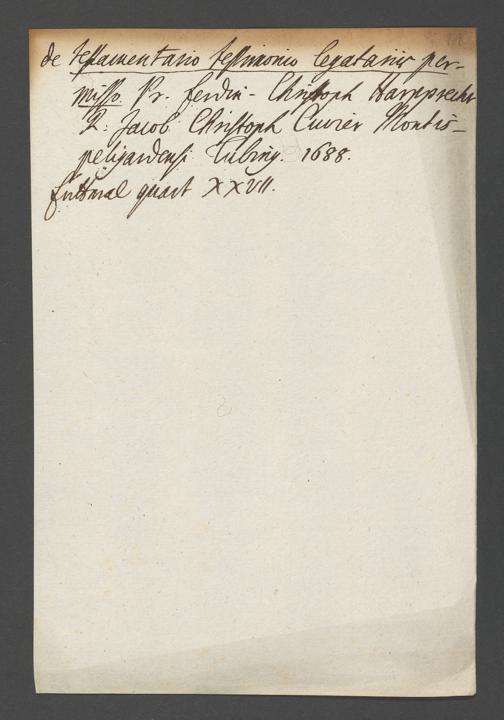 de testamentario testimonio legatariis per-
misso. Pr. Ferdin- Christoph Harpprecht
R: Jacob Christoph Cuvier Montis-
peligardensi Tubing. 1688.
quart XXVII.